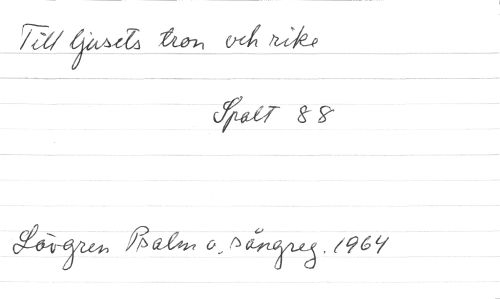 Till ljusets tron och rike
Spalt 88
Lövgren Psalm o. sångreg. 1964